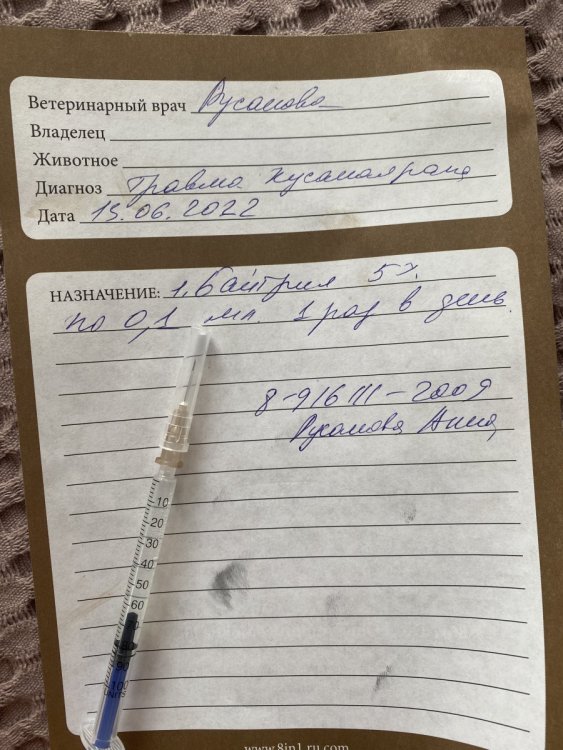 Ветеринарный врач Русанова
Владелец
Животное
Диагноз травма кусаная рана
Дата 15.06.2022
НАЗНАЧЕНИЕ: 1. Байтрил 5%
по 0,1 мл. 1 раз в день.
8-916 111-2009
Русанова Анна
10
20
30
40
50
60
90
100
UNITS
www.8in1.ru.com